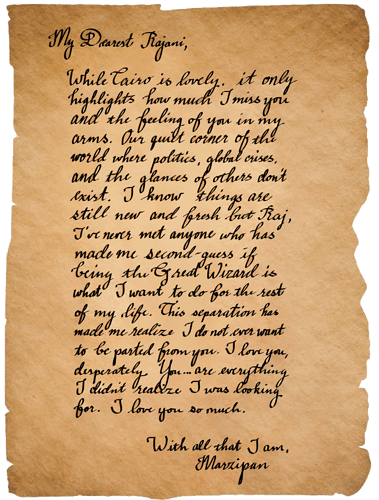 My Dearest Rajani,
While Cairo is lovely, it only
highlights how much I miss you
and the feeling of you in my
arms. Our quiet corner of the
world where politics, global crises,
and the glances of others don't
exist. I know things are
still new and fresh but Raj,
I've never met anyone who has
made me second-guess if
being the Great Wizard is
what I want to do for the rest
of my life. This separation has
made me realize I do not ever want
to be parted from you. I love you,
desperately. You... are everything
I didn't realize I was looking
for. I love you so much.
With all that I am,
Marzipan